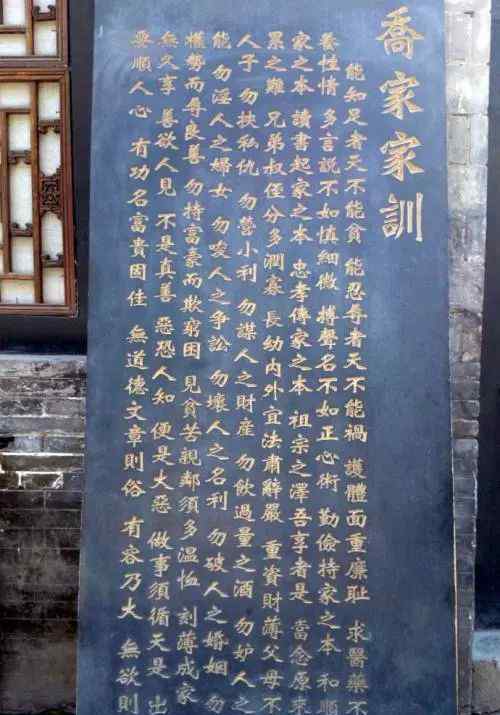 喬家家訓
能知足者天不能貧 能忍辱者天不能禍 護體面重廉恥 求醫藥不
養性情 多言說不如慎細微 搏聲名不如正心術 勤儉持家之本 和順
家之本 讀書起家之本 忠孝傳家之本 祖宗之澤吾享者是 當念原來
累之難 兄弟叔侄分多潤寡 長幼內外宜法肅辭嚴 重資財薄父母不
人子 勿扶私仇 勿營小利 勿謀人之財產 勿飲過量之酒 勿妒人之
能 勿淫人之婦女 勿唆人之爭訟 勿壞人之名利 勿破人之婚姻 勿
權勢而辱良善 勿持富豪而欺窮困 見貧苦親鄰須多溫恤 刻薄成家
無久享 善欲人見 不是真善 惡恐人知 便是大惡 做事須循天是 出
要順人心 有功名富貴固佳 無道德文章則俗 有容乃大 無欲則